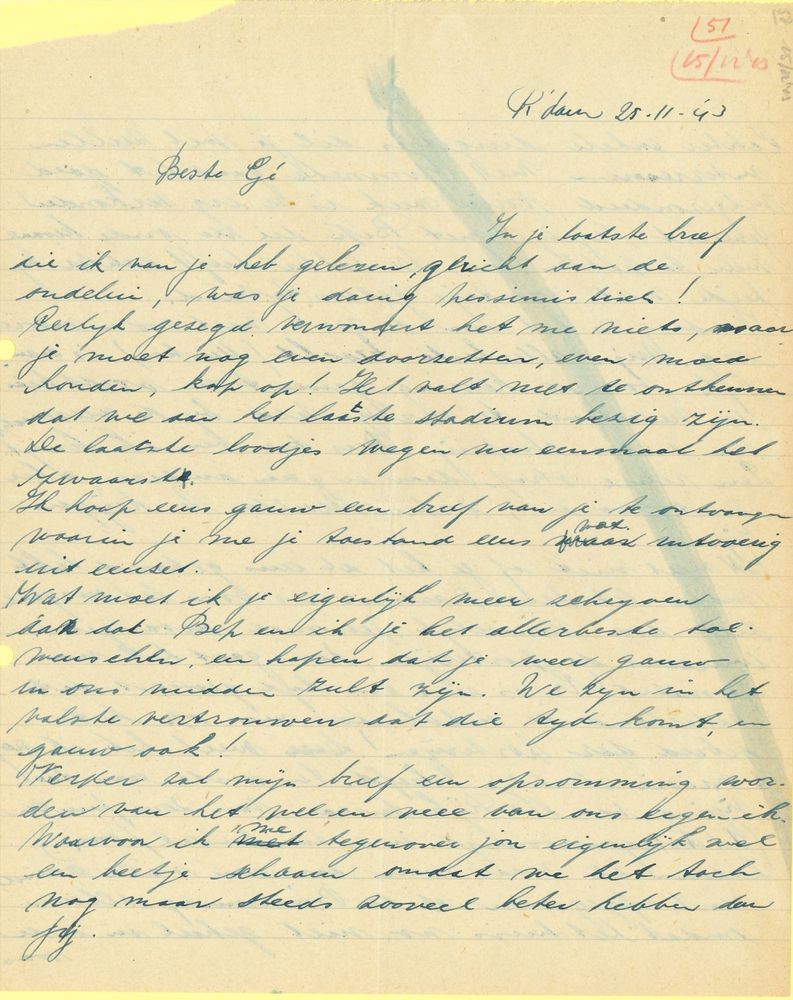 51
15/12 '43
R'dam 25-11-'43
Beste Eje
In je laatste brief
die ik van je heb gelezen, gericht aan de
oudelui, was je danig pessimistisch!
Eerlijk gezegd verwondert het me niets, maar
je moet nog even doorzetten, even moed
houden, kop op! Het valt niet te ontkennen
dat we aan het laatste stadium bezig zijn.
De laatste loodjes wegen nu eenmaal het
zwaarst.
Ik hoop eens gauw een brief van je te ontvangen
waarin je me je toestand eens wat uitvoerig
uit eenzet.
Wat moet ik je eigenlijk meer schrijven
dan dat Bep en ik je het allerbeste toe-
wenschen, en hopen dat je weer gauw
in ons midden zult zijn. We zijn in het
volste vertrouwen dat die tijd komt, en
gauw ook!
Verder zal mijn brief een opsomming wor-
den van het wel en wee van ons eigen ik.
Waarvoor ik me tegenover jou eigenlijk wel
een beetje schaam omdat we het toch
nog maar steeds zooveel beter hebben dan
jij.